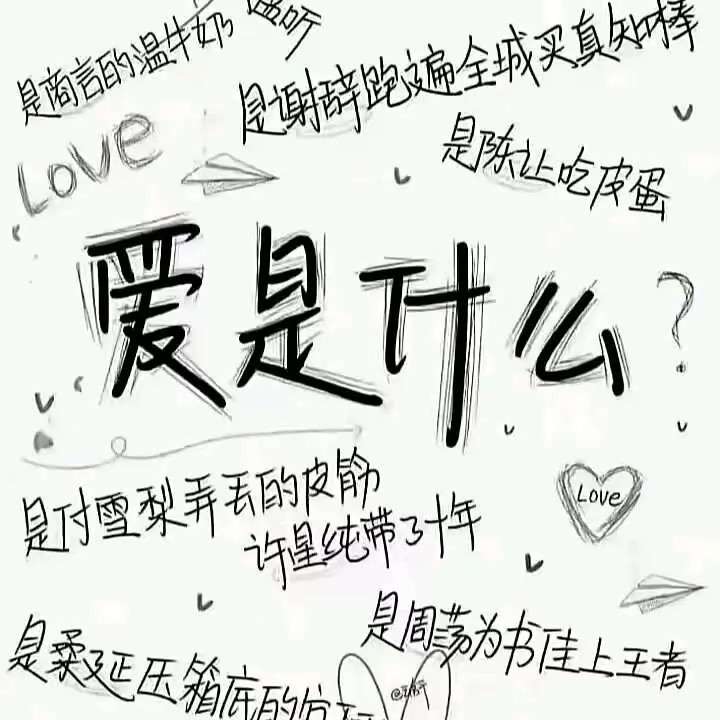 是商言的温牛奶
是谢辞跑遍全城买真知棒
Love
是陈让吃皮蛋
爱是什么?
是付雪梨弄丢的皮筋
许星纯带了十年
Love
是周荡为书佳上王者
是柔延压箱底的